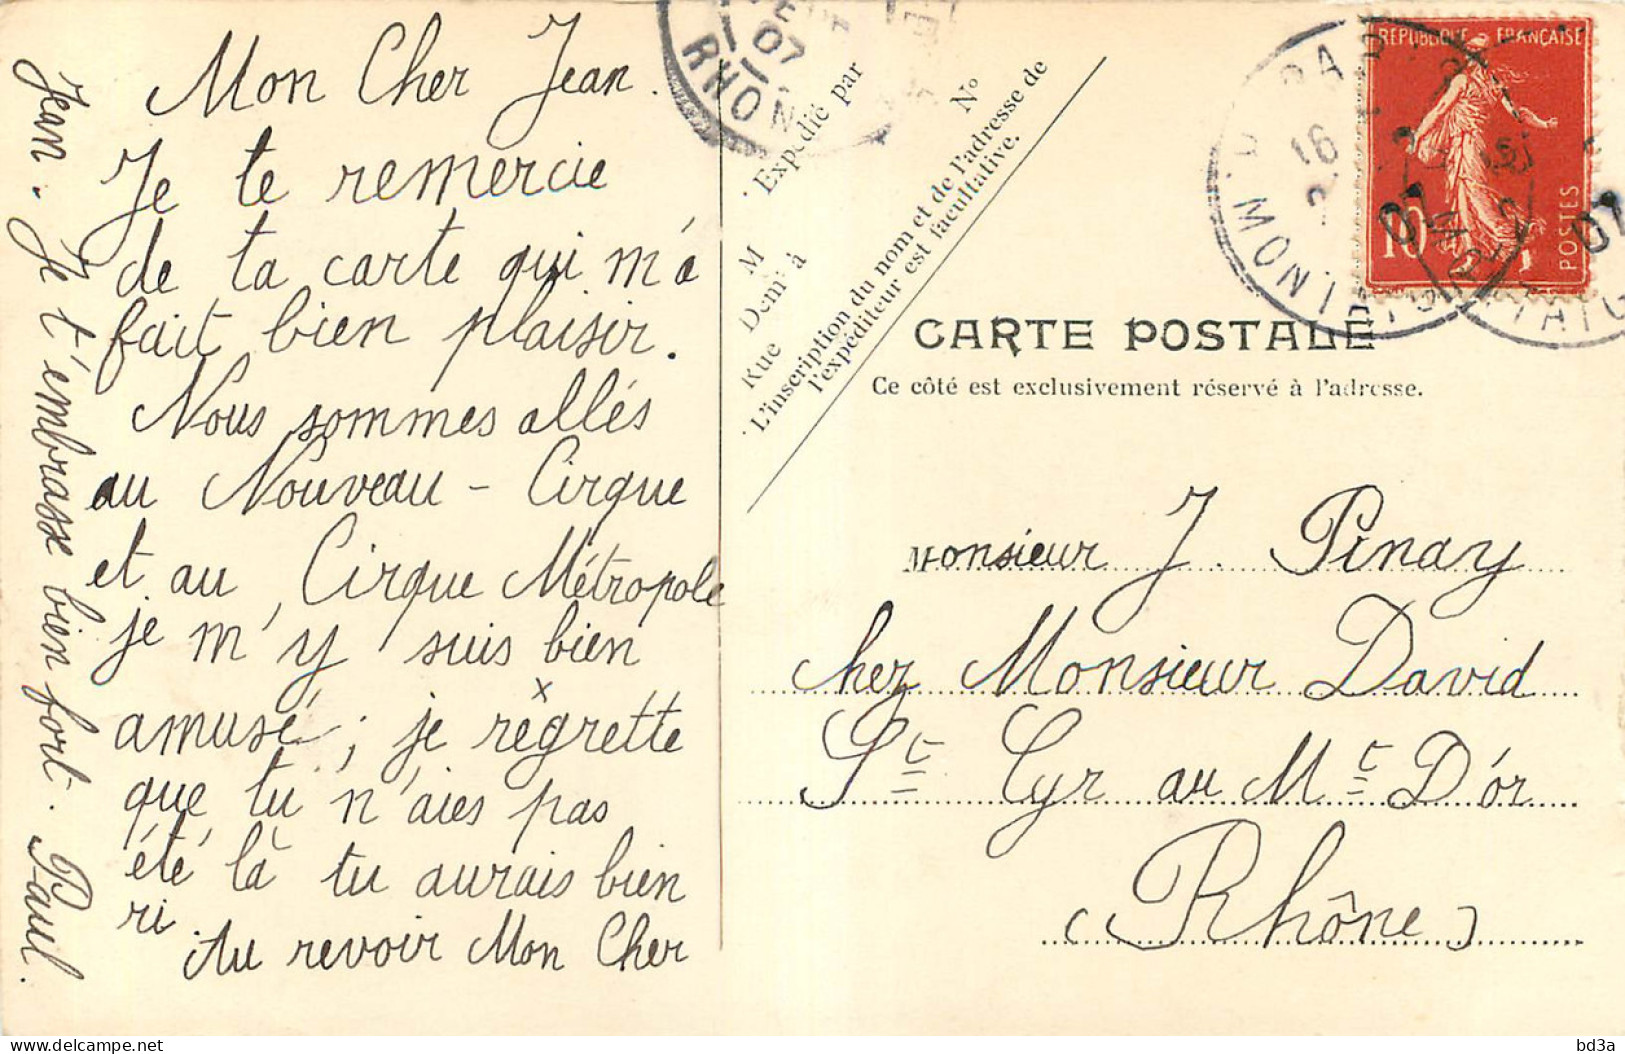 Mon Cher Jean.
Je te remercie
de ta carte qui m'a
fait bien plaisir.
Nous sommes allés
au Nouveau - Cirque
et au Cirque Métropole
je m'y suis bien
amusé ; je règrette
x
que tu n'aies pas
été là tu aurais bien
ri.
Au revoir Mon Cher
Jean. Je t'embrasse bien fort. Paul.
07
RHON
Expédié par
M
Demt à
Rue
N°
L'inscription du nom et de l'adresse de
l'expéditeur est facultative.
RÉPUBLIQUE FRANÇAISE
10
POSTES
PAR
16
07
07
CARTE POSTALE
Ce côté est exclusivement réservé à l'adresse.
Monsieur J. Pinay
chez Monsieur David
St Cyr au Mt D'or
(Rhône)
bd3a
delcampe.net